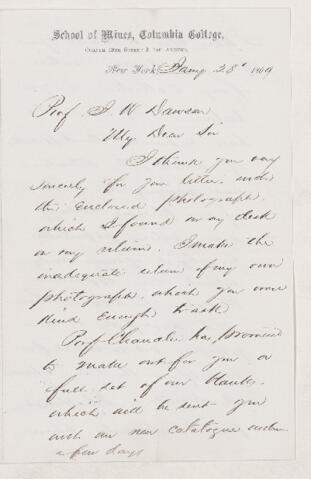 School of Mines, Columbia College,
Corner 49th Street & 4th Avenue,
New York, Jany 28th 1869
Prof J. W. Dawson
My Dear Sir
I thank you very
sincerely for your letter and
the enclosed photograph
which I found on my desk
on my return. I make the
inadequate return of my own
photograph, which you were
kind enough to ask
Prof Chandler has promised
to make out for you a
full set of our blanks.
which will be sent you
with our new catalogue within
a few days